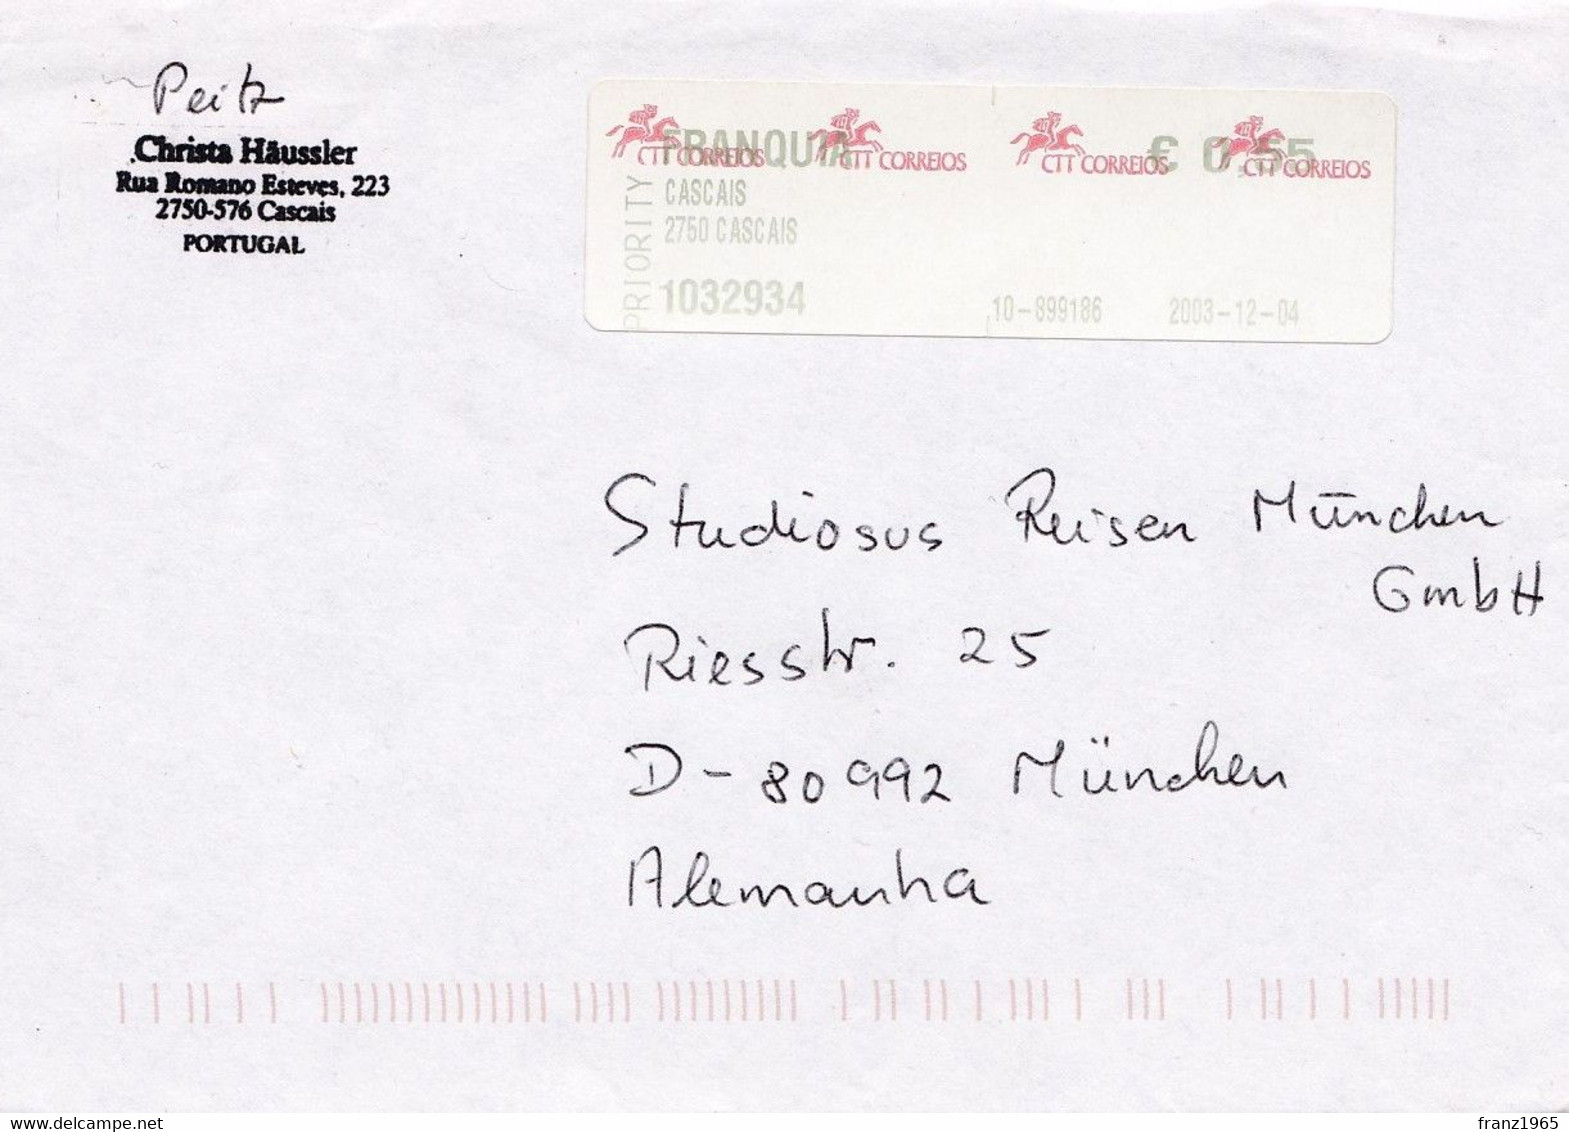 Peitz
Christa Häussler
Rua Romano Esteves, 223
2750-576 Cascais
PORTUGAL
CTT CORREIOS CTT CORREIOS CTT CORREIOS CTT CORREIOS
FRANQUIA € 0,55
PRIORITY
CASCAIS
2750 CASCAIS
1032934 10-899186 2003-12-04
Studiosus Reisen München
GmbH
Riesstr. 25
D-80992 München
Alemanha
delcampe.net franz1965